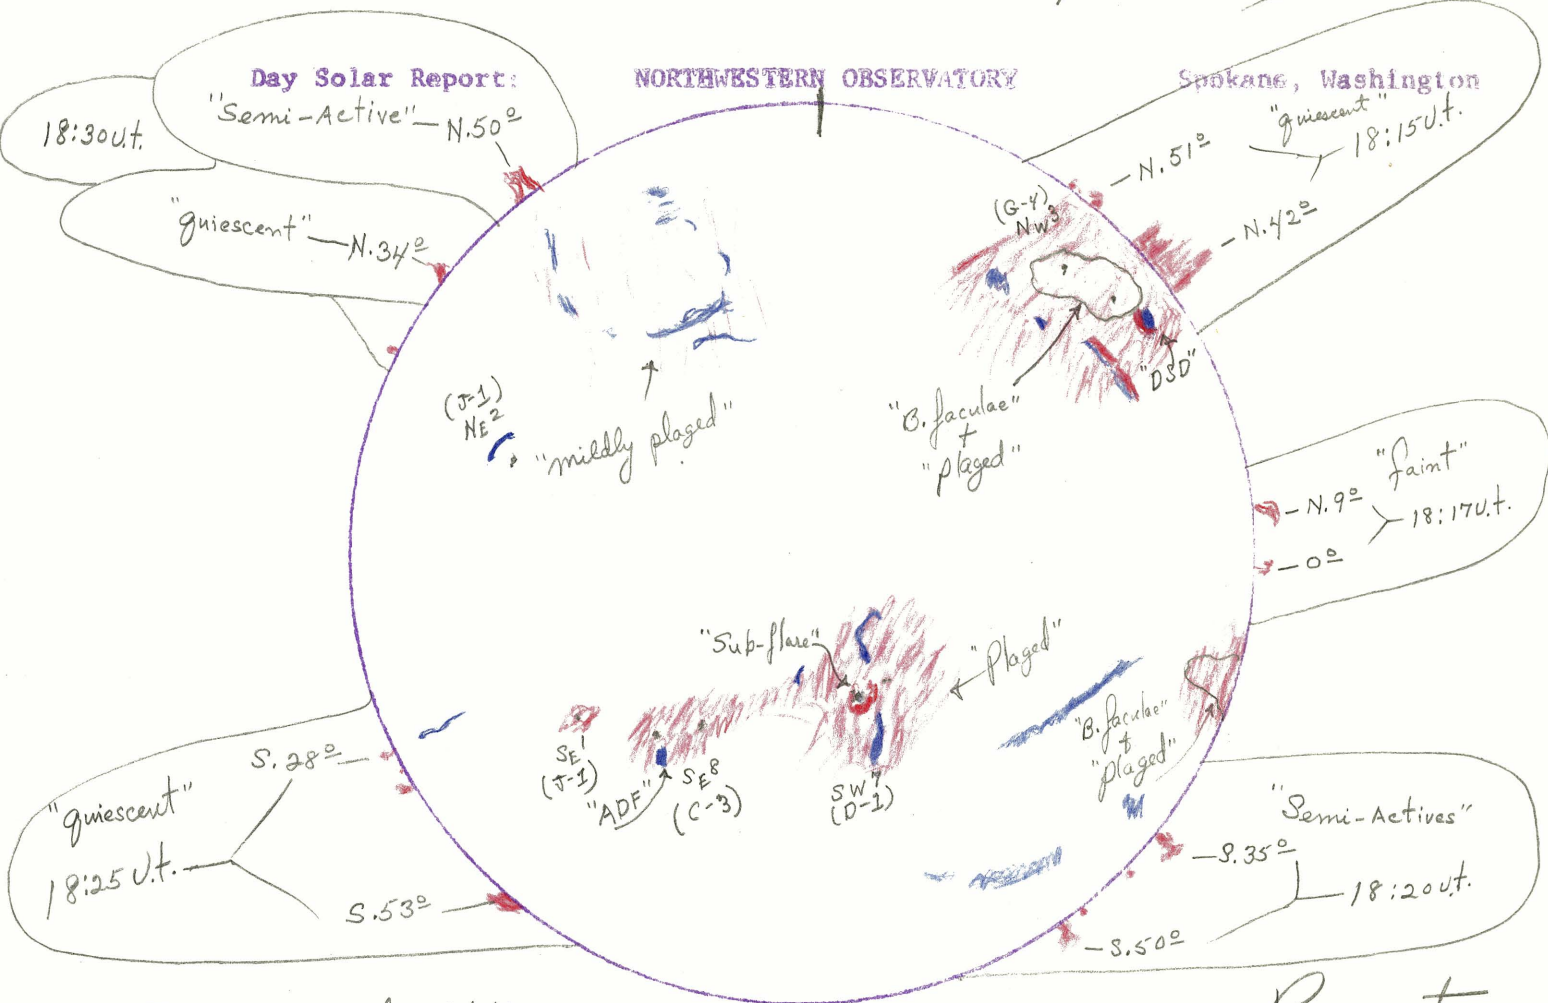 Day Solar Report: NORTHWESTERN OBSERVATORY Spokane, Washington
"Semi-Active" — N.50º
18:30 U.t.
"quiescent" — N.34º
N.51º
"quiescent"
18:15 U.t.
N.42º
(G-4)
NW3
"DSD"
"B. faculae"
+
"plaged"
(J-1)
NE2
"mildly plaged"
"faint"
N.9º
18:17 U.t.
0º
"Sub-flare"
"Plaged"
"B. faculae"
&
"plaged"
SE1
(J-1)
"ADF"
SE8
(C-3)
SW7
(D-1)
S.28º
"quiescent"
18:25 U.t.
S.53º
"Semi-Actives"
S.35º
18:20 U.t.
S.50º